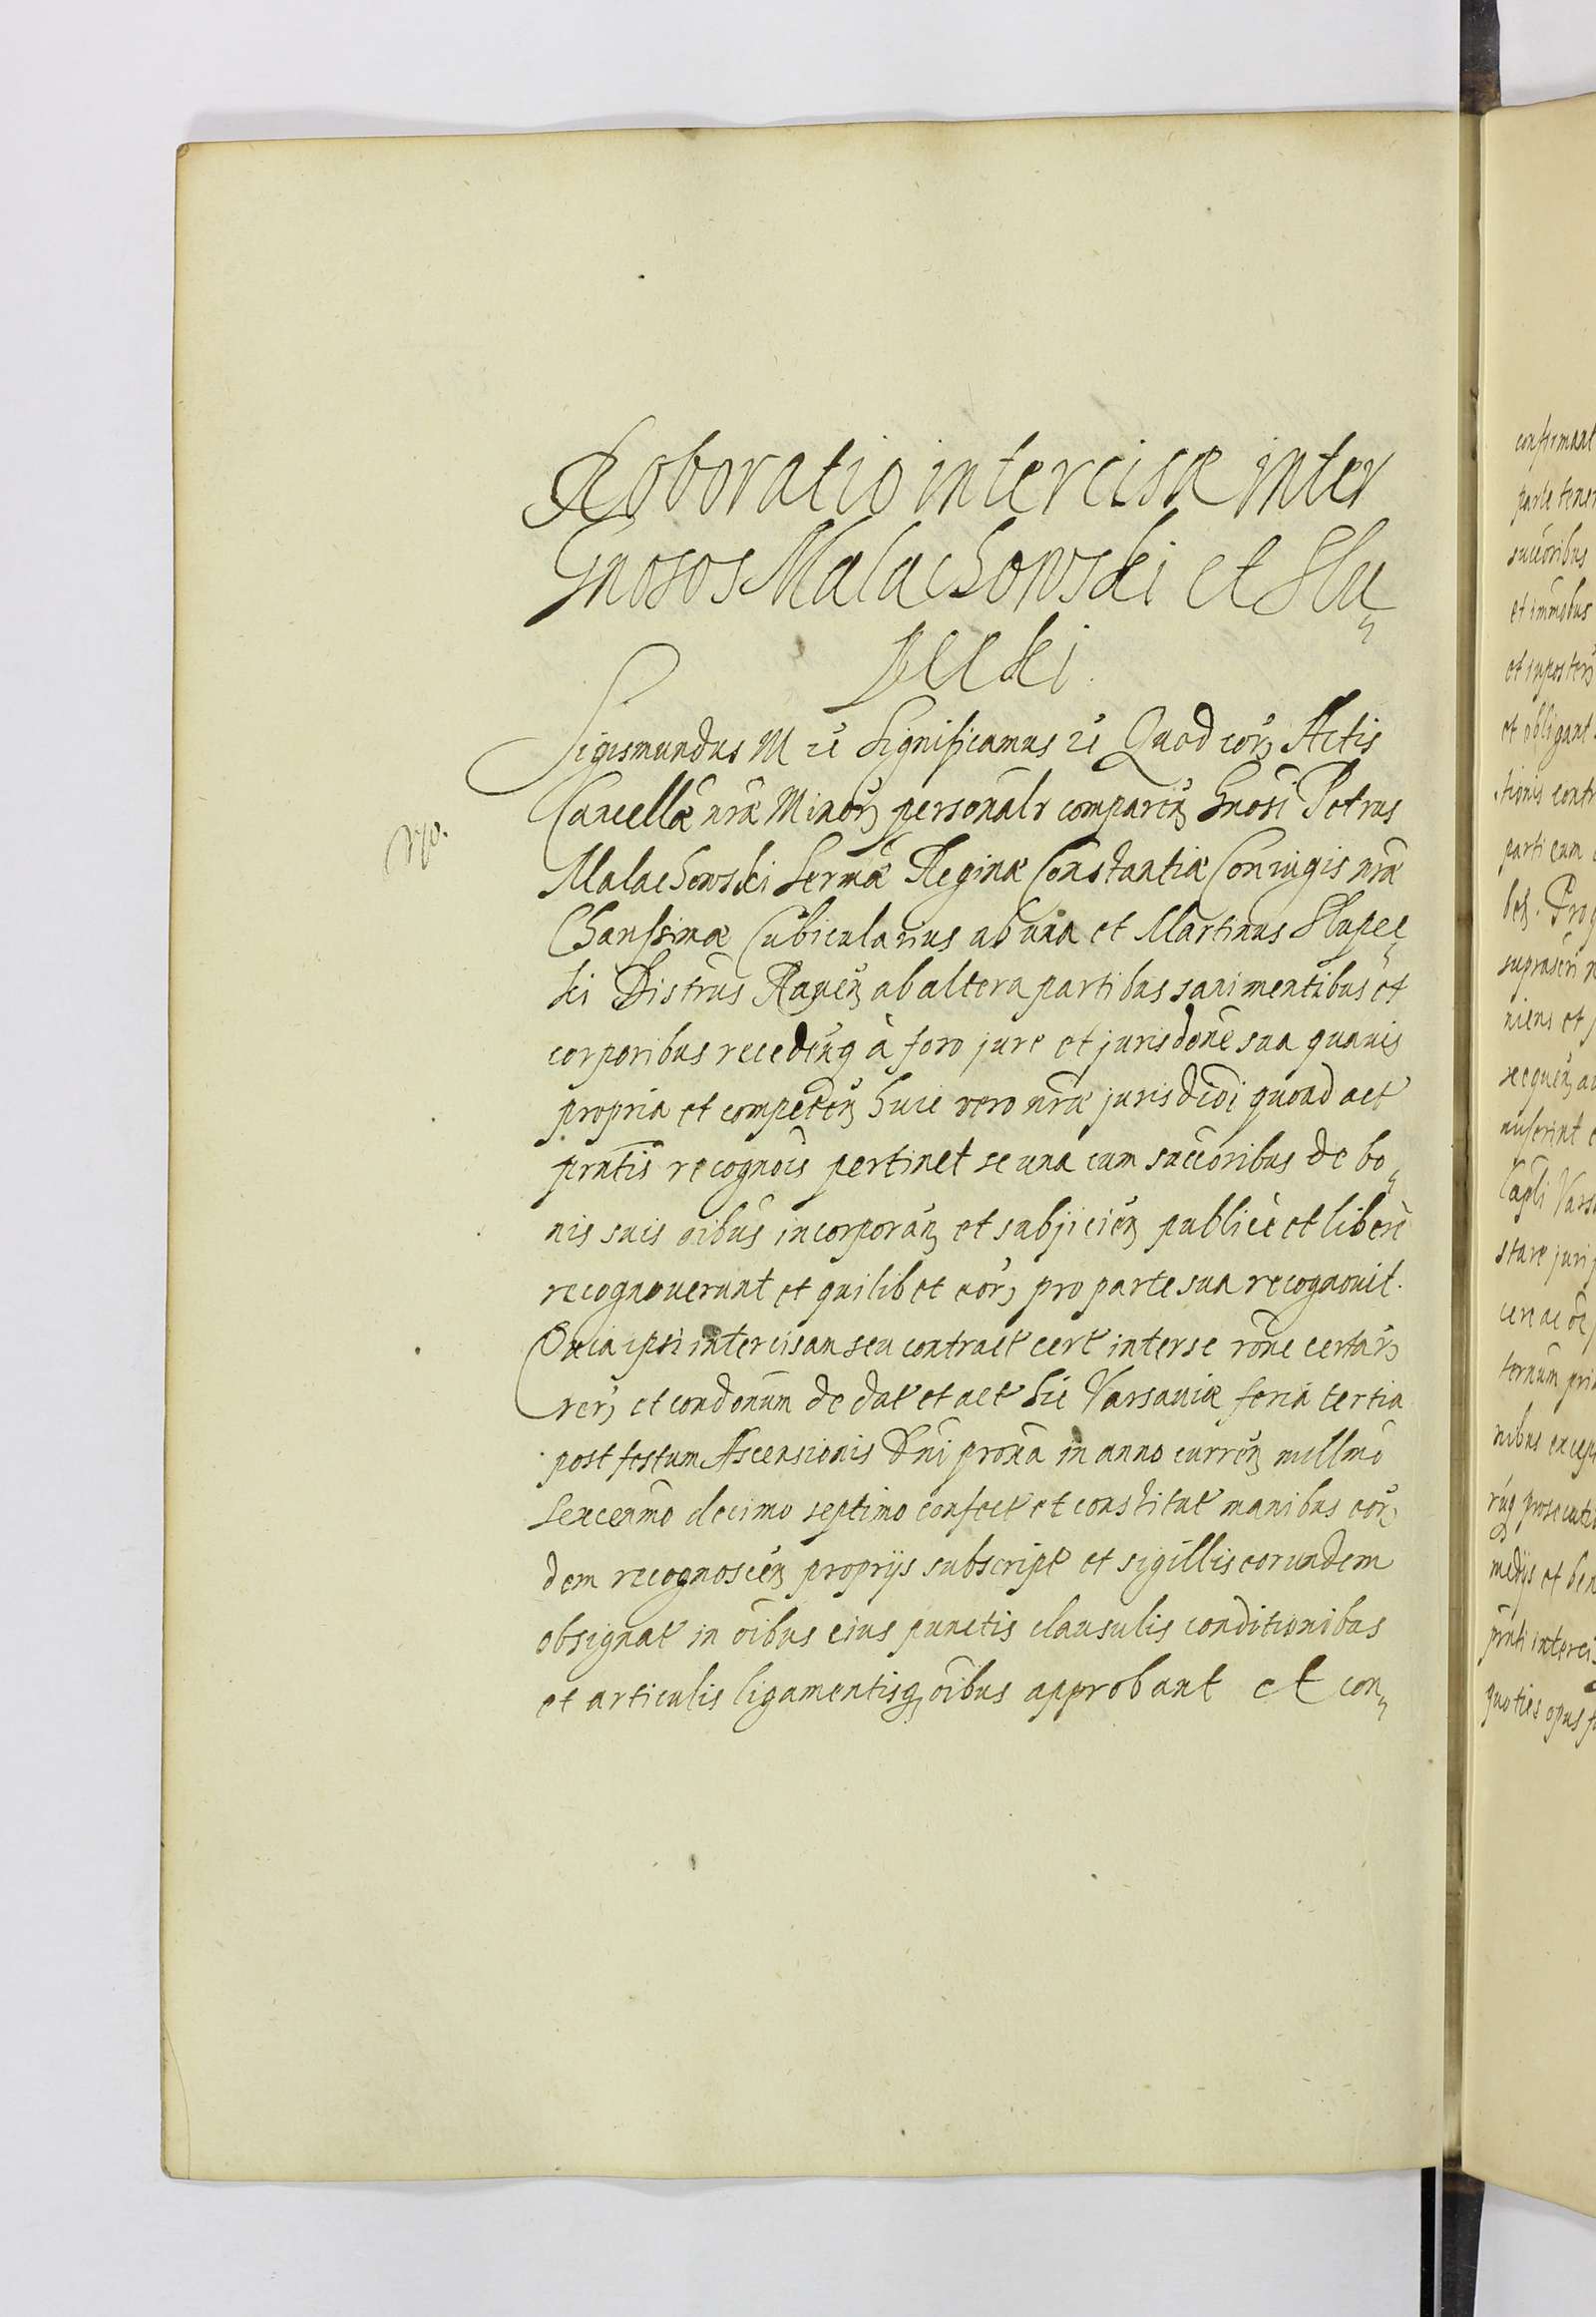 Roboratio intercisæ inter
Gnosos Malachowski et Slu„
pecki.
Sigismundus III etc̃ Significamus etc̃ Quod corꝫ Actis
Cancellæ nr̃æ Minorꝫ personalr comparen̄ꝫ Gnosi Petrus
Malachowski Sermæ Reginæ Constantiæ Coniugis nr̃æ
Charissimæ Cubicularius ab una et Martinus Slupec„
ki Distr̃us Raven̄ꝫ ab altera partibus sani mentibus et
corporibus recedenꝗ à foro jure et jurisdõne sua quavis
propria et competen̄ꝫ huic vero nr̃æ jurisdcõi quoad act
pñtis recognõis pertinet se una cum succõribus de bo„
nis suis oĩbus incorporan̄ꝫ et subjicien̄ꝫ publicè et liberè
recognoverunt et quilibet eorꝫ pro parte sua recognovit.
Quia ipsi intercisam seu contract cert inter se rõne certarꝫ
rerꝫ et condonum de dat et act hic Varsaviæ feria tertia
post festum Ascensionis Dñi proxã in anno curren̄ꝫ millmõ
sexcenmõ decimo septimo confect et constitut manibus eorꝫ
dem recognoscen̄ꝫ proprijs subscript et sigillis eorundem
obsignat in oĩbus eius punctis clausulis conditionibus
et articulis ligamentisꝗ oĩbus approbant et con„
confirmant
parte
succõribus
et immobus
et inposterꝫ
et obligant
tionis
parti cum
niens et
stare juri
ternum
nibus
medijs et
pñti interci
quoties opus